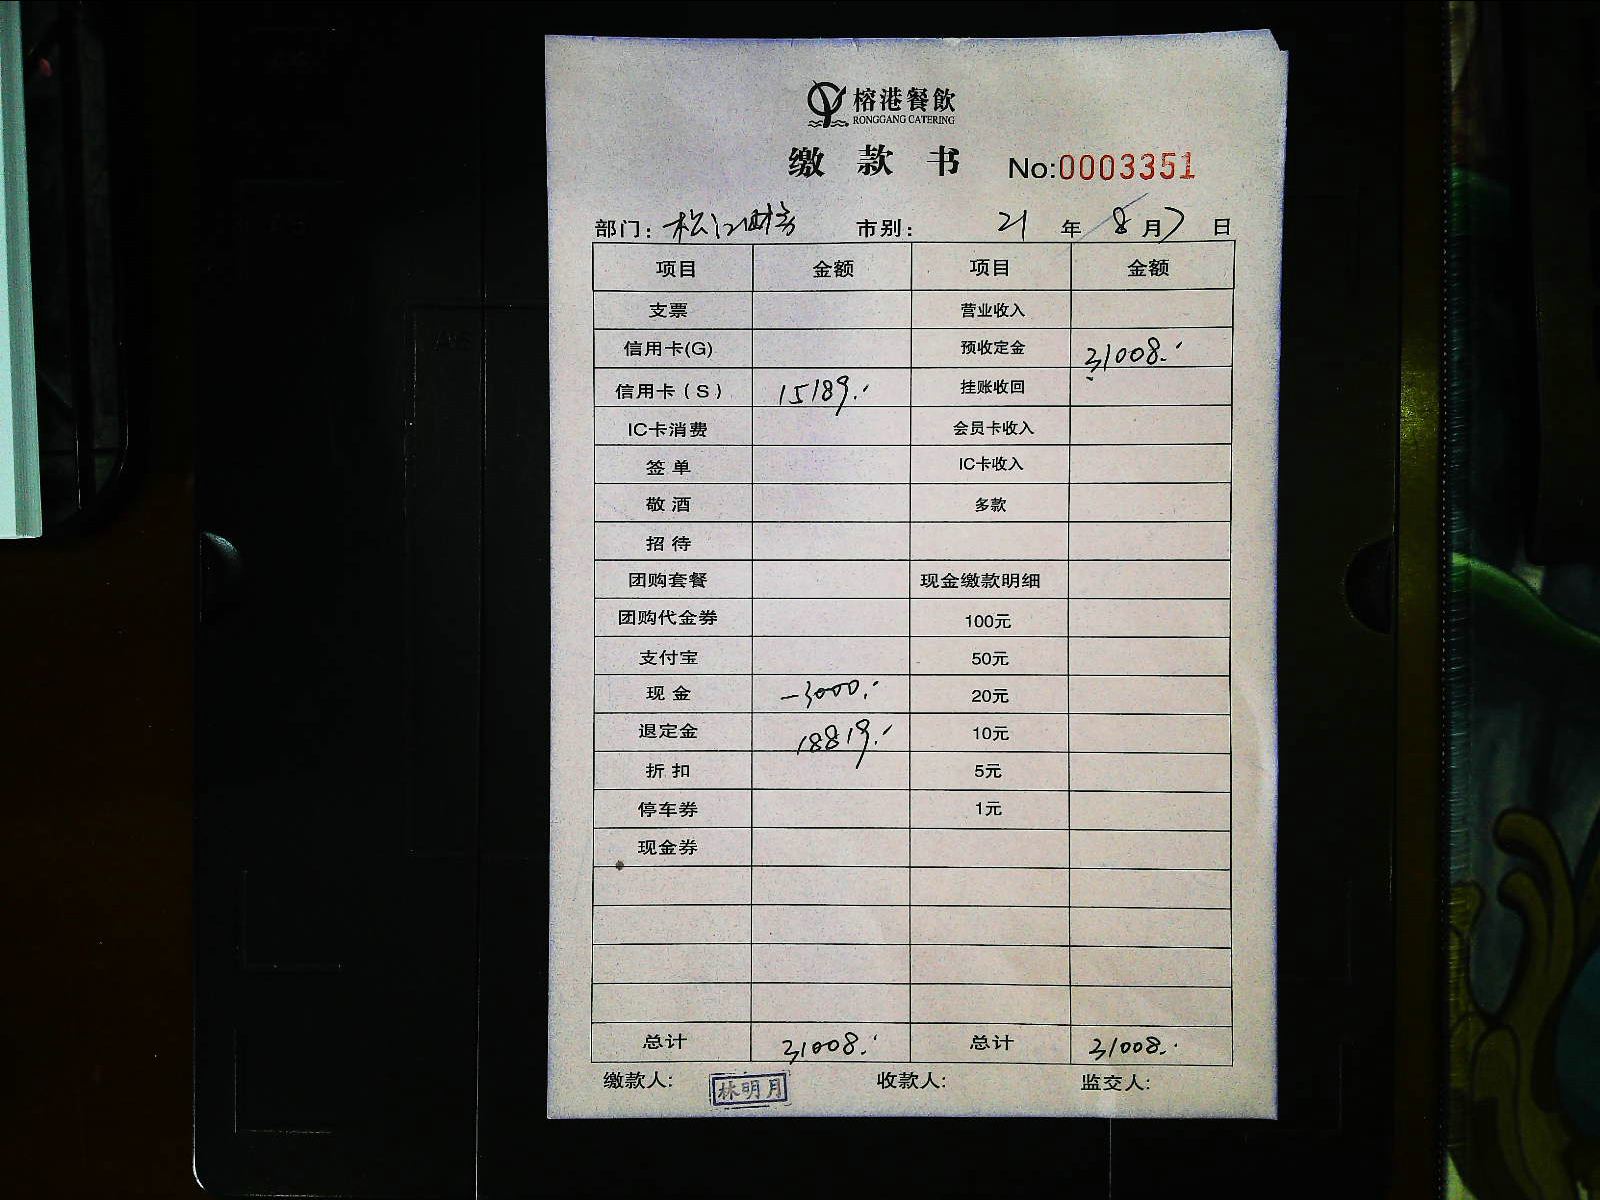 榕港餐飲
RONGGANG CATERING
缴款书 No:0003351
部门：松江财务 市别： 21年8月7日
项目 金额 项目 金额
支票 营业收入
信用卡(G) 预收定金 31008.-
信用卡（S） 15189.- 挂账收回
IC卡消费 会员卡收入
签单 IC卡收入
敬酒 多款
招待
团购套餐 现金缴款明细
团购代金券 100元
支付宝 50元
现金 -3000.- 20元
退定金 18819.- 10元
折扣 5元
停车券 1元
现金券
总计 31008.- 总计 31008.-
缴款人: 林明月 收款人: 监交人: